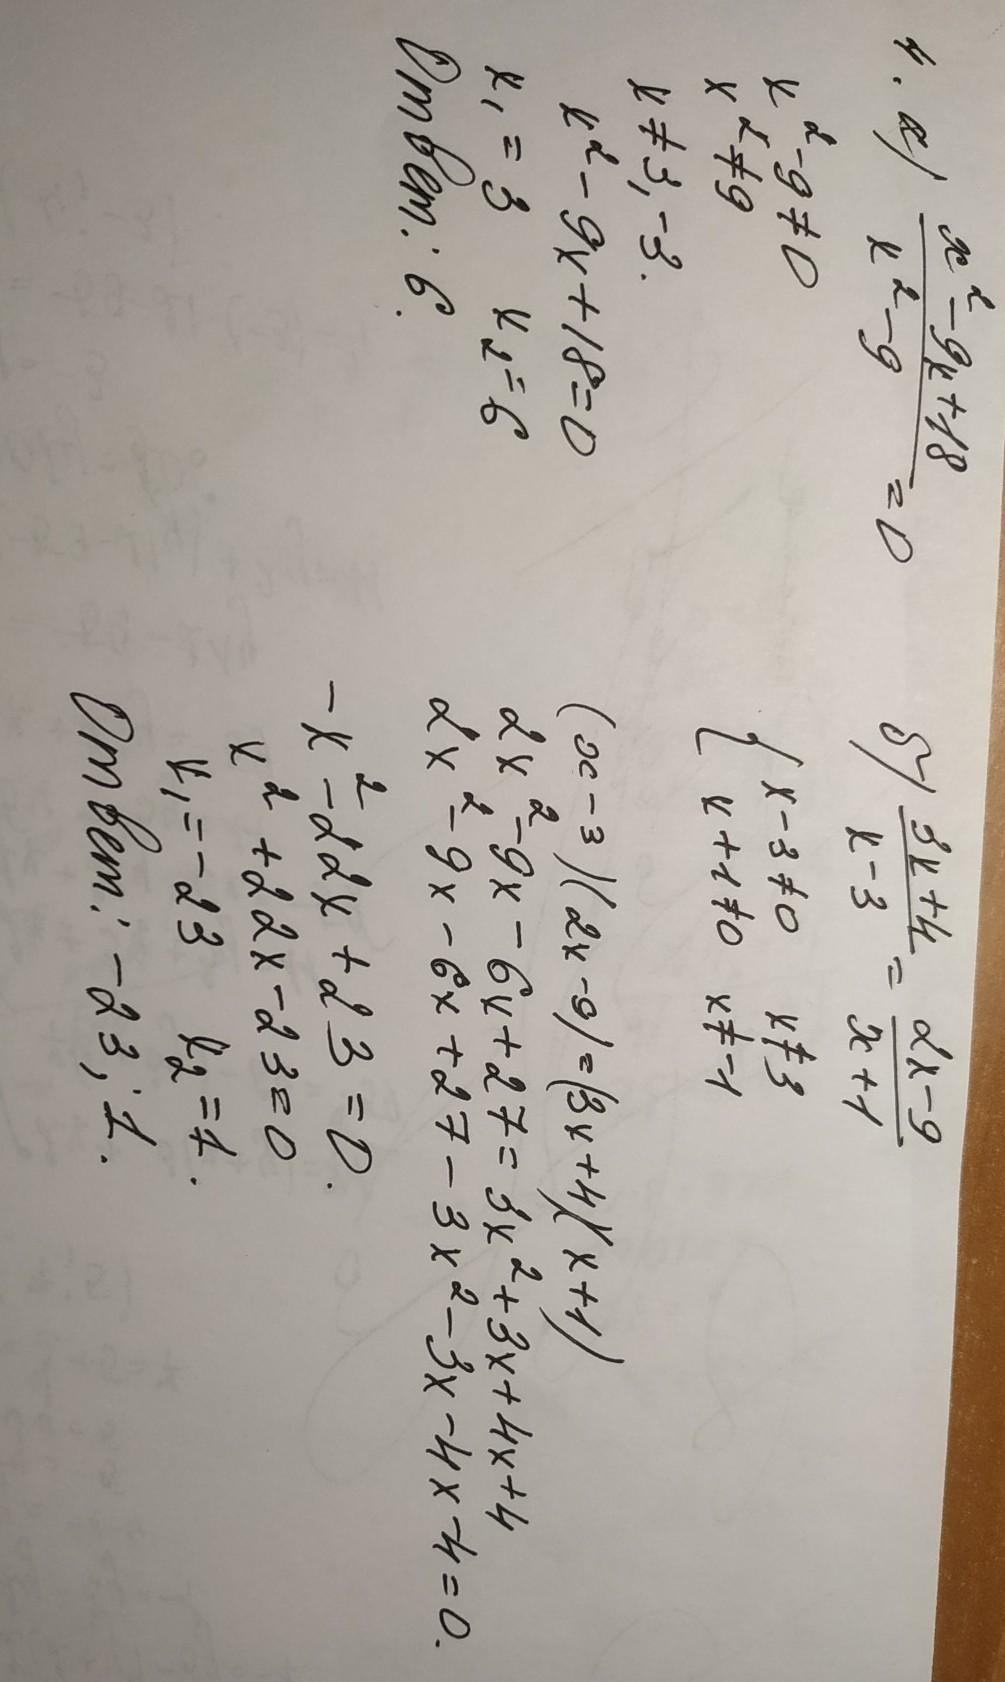 4. а) (x² - 9x + 18)/(x² - 9) = 0
x² - 9 ≠ 0
x² ≠ 9
x ≠ 3, -3.
x² - 9x + 18 = 0
x₁ = 3 x₂ = 6
Ответ: 6.
б) (3x + 4)/(x - 3) = (2x - 9)/(x + 1)
{ x - 3 ≠ 0 x ≠ 3
x + 1 ≠ 0 x ≠ -1
(x - 3)(2x - 9) = (3x + 4)(x + 1)
2x² - 9x - 6x + 27 = 3x² + 3x + 4x + 4
2x² - 9x - 6x + 27 - 3x² - 3x - 4x - 4 = 0.
-x² - 22x + 23 = 0.
x² + 22x - 23 = 0
x₁ = -23 x₂ = 1.
Ответ: -23; 1.